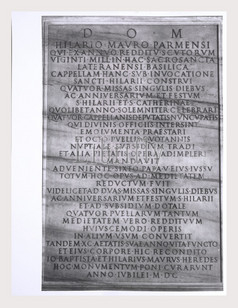 D O M
HILARIO MAVRO PARMENSI
VIGINTI MILL IN HAC SACROSANCTA
LATERANENSI BASILICA
CAPPELLAM HANC SVB INVOCATIONE
SANCTI HILARII CONSTRVI
QVATVOR MISSAS SINGVLIS DIEBVS
AC ANNIVERSARIVM ET FESTVM
S HILARII ET S CATHERINAE
QVOLIBET ANNO SOLEMNITER CELEBRARI
QVI DIVINIS OFFICIIS INTERSINT
EMOLVMENTA PRAESTARI
NVPTIALE SVBSIDIVM TRADI
ET ALIA PIETATIS OPERA ADIMPLERI
MANDAVIT
ADVENIENTE SIXTO PAPA V EIVS IVSSV
TOTVM HOC OPVS AD
REDVCTVM FVIT
VIDELICET AD DVAS MISSAS SINGVLIS DIEBVS
AC ANNIVERSARIVM ET FESTVM S HILARII
ET AD SVBSIDIVM DOTALE
QVATVOR PVELLARVM TANTVM
MEDIETATEM VERO REDDITVVM
HVIVSCEMODI OPERIS
IN ALIVM VSVM CONVERTIT
TANDEM AETATIS SVAE ANNO VITA FVNCTO
ET EIVS CORPORE HIC RECONDITO
IO BAPTISTA ET HILARIVS MAVRVS HEREDES
HOC MONVMENTVM PONI CVRARVNT
ANNO IVBILEI M D C